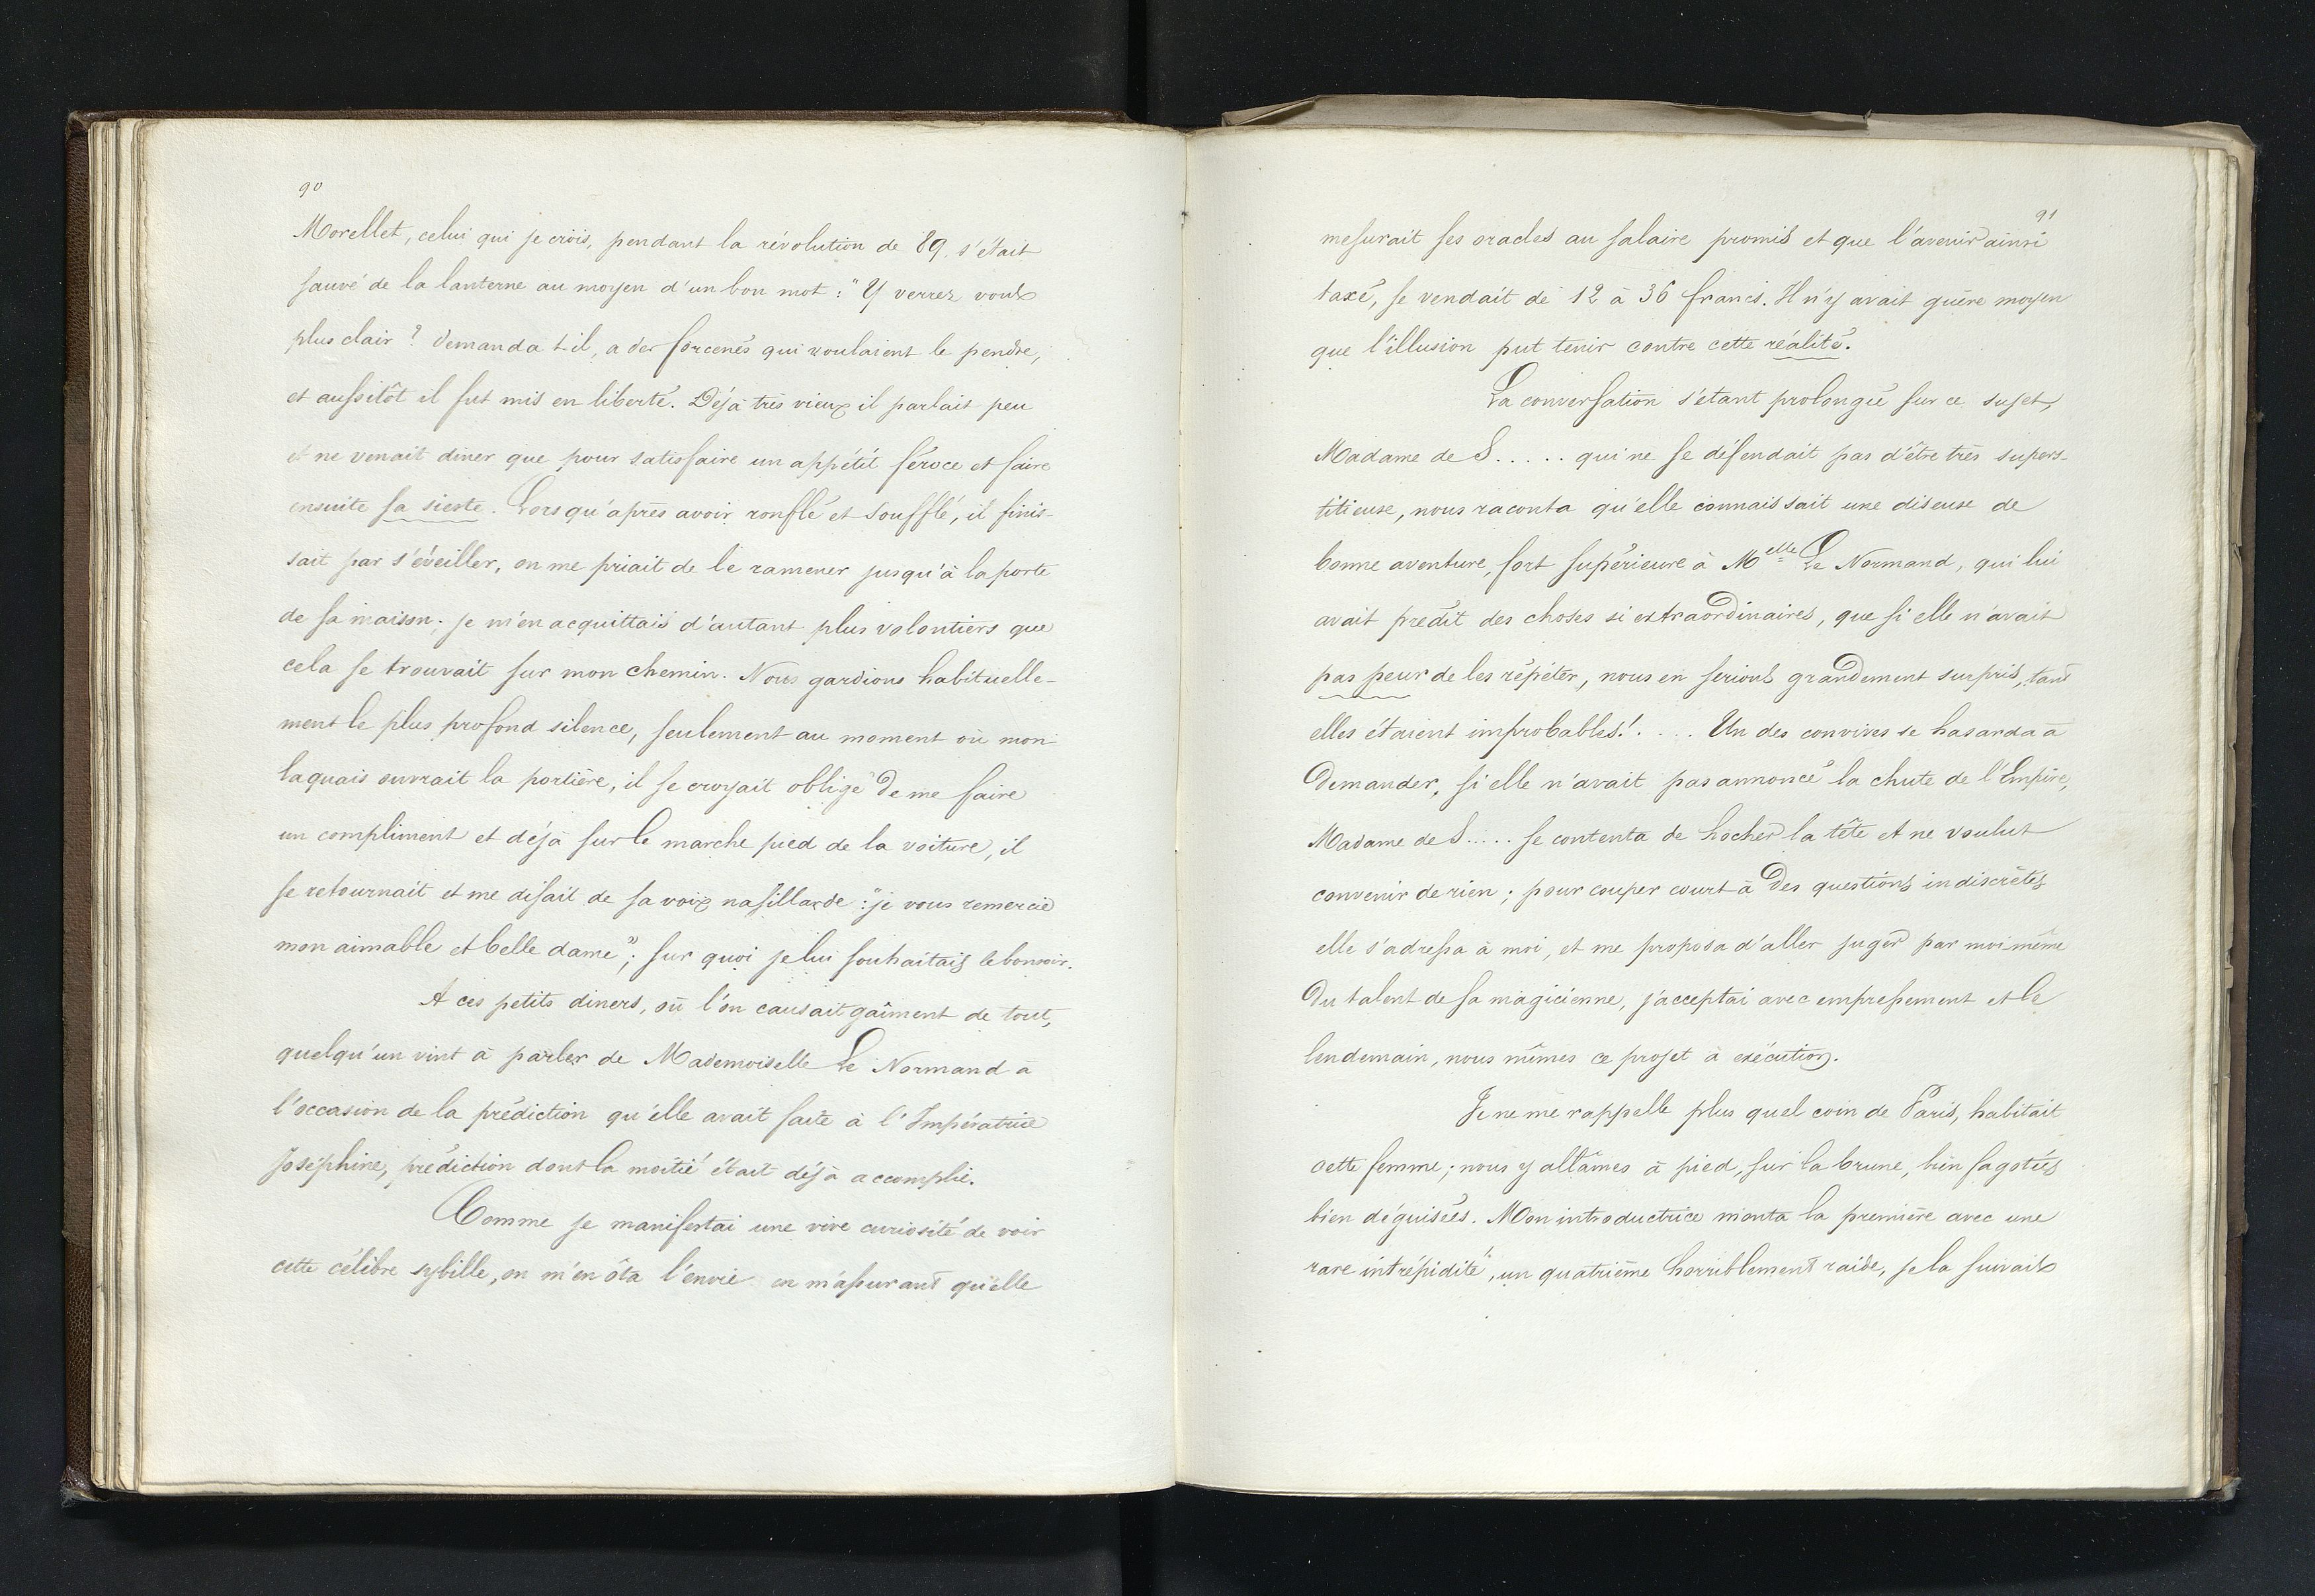 90
Morellet, celui qui je crois, pendant la révolution de 89. s'était
sauvé de la lanterne au moyen d'un bon mot : "Y verrez vous
plus clair ? demanda t-il, a des forcenés qui voulaient le pendre,
et aussitôt il fut mis en liberté. Déjà très vieux il parlait peu
et ne venait diner que pour satisfaire un appétit féroce et faire
ensuite sa sieste. Lorsqu'après avoir ronflé et soufflé, il finis-
sait par s'éveiller, on me priait de le ramener jusqu'à la porte
de sa maison; je m'en acquittais d'autant plus volontiers que
cela se trouvait sur mon chemin. Nous gardions habituelle-
ment le plus profond silence, seulement au moment où mon
laquais ouvrait la portière, il se croyait obligé de me faire
un compliment et déjà sur le marche pied de la voiture, il
se retournait et me disait de sa voix nasillarde : "je vous remercie
mon aimable et belle dame"; sur quoi je lui souhaitais le bonsoir.
A ces petits diners, où l'on causait gaîment de tout,
quelqu'un vint à parler de Mademoiselle Le Normand à
l'occasion de la prédiction qu'elle avait faite à l'Impératrice
Joséphine, prédiction dont la moitié était déjà accomplie.
Comme je manifestai une vive curiosité de voir
cette célèbre sybille, on m'en ôta l'envie en m'assurant qu'elle
91
mesurait ses oracles au salaire promis et que l'avenir ainsi
taxé, se vendait de 12 à 36 francs. Il n'y avait guère moyen
que l'illusion put tenir contre cette réalité.
La conversation s'étant prolongée sur ce sujet,
Madame de S..... qui ne se défendait pas d'être très supers-
titieuse, nous raconta qu'elle connaissait une diseuse de
bonne aventure, fort supérieure à Melle Le Normand, qui lui
avait prédit des choses si extraordinaires, que si elle n'avait
pas peur de les répéter, nous en serions grandement surpris, tant
elles étaient improbables!.... Un des convives se hasarda à
demander, si elle n'avait pas annoncé la chute de l'Empire,
Madame de S..... se contenta de hocher la tête et ne voulut
convenir de rien ; pour couper court à des questions indiscrètes
elle s'adressa à moi, et me proposa d'aller juger par moi même
du talent de sa magicienne, j'acceptai avec empressement et le
lendemain, nous mîmes ce projet à exécution.
Je ne me rappelle plus quel coin de Paris, habitait
cette femme ; nous y allâmes à pied, sur la brune, bien fagotées
bien déguisées. Mon introductrice monta la première avec une
rare intrépidité, un quatrième horriblement raide, je la suivais